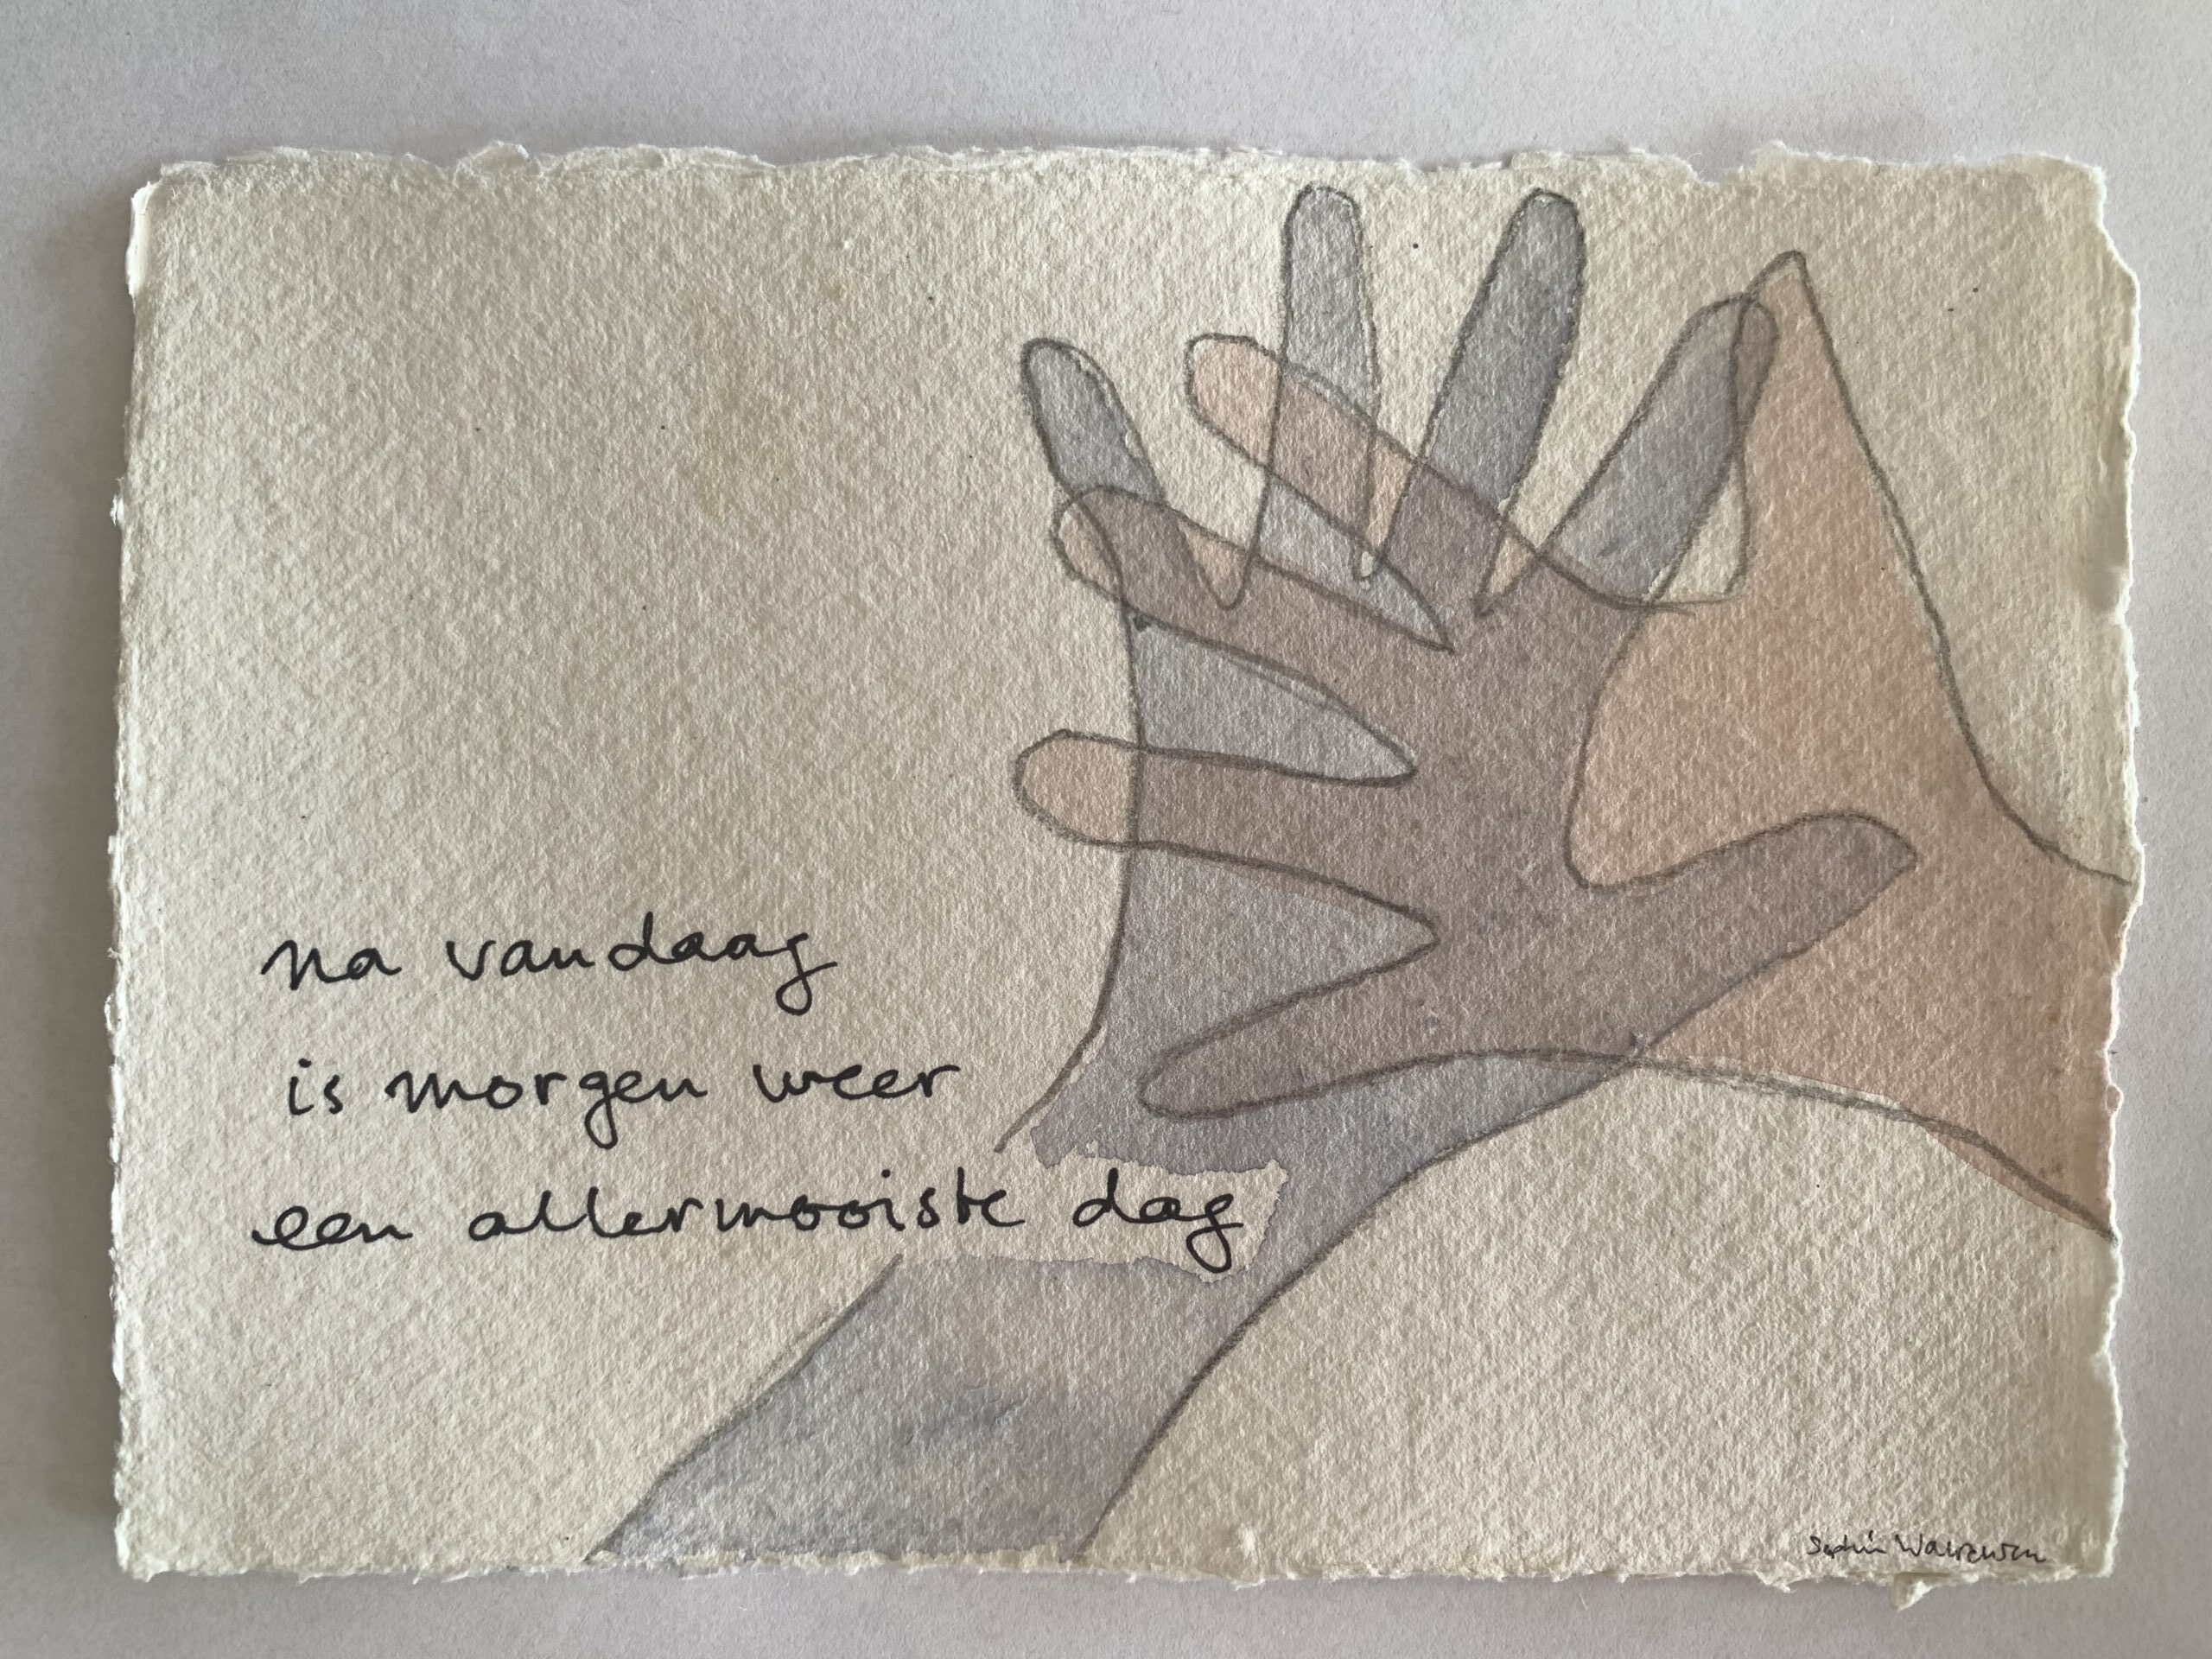 na vandaag
is morgen weer
een allermooiste dag